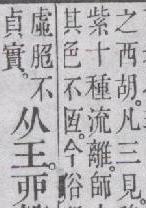 之西胡。凡三見
紫十種流離。師
其色不恆。今俗
虛脃不
貞實。
从王丣